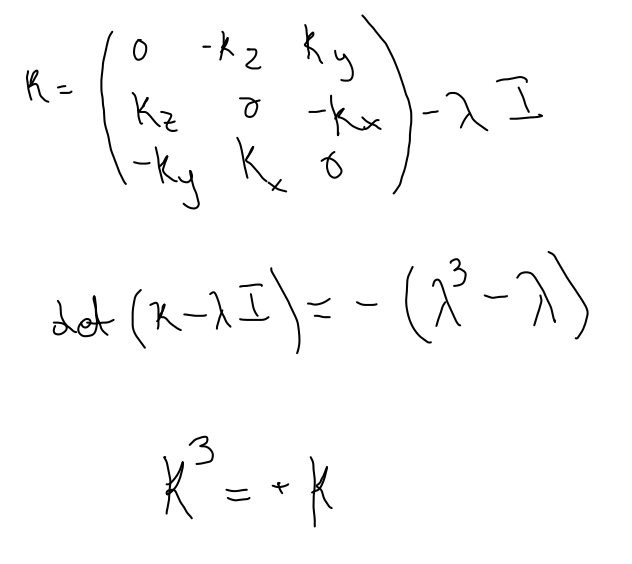 K = ( 0 -k_z k_y
k_z 0 -k_x ) - λ I
-k_y k_x 0
det (K - λI) = - (λ³ - λ)
K³ = + K